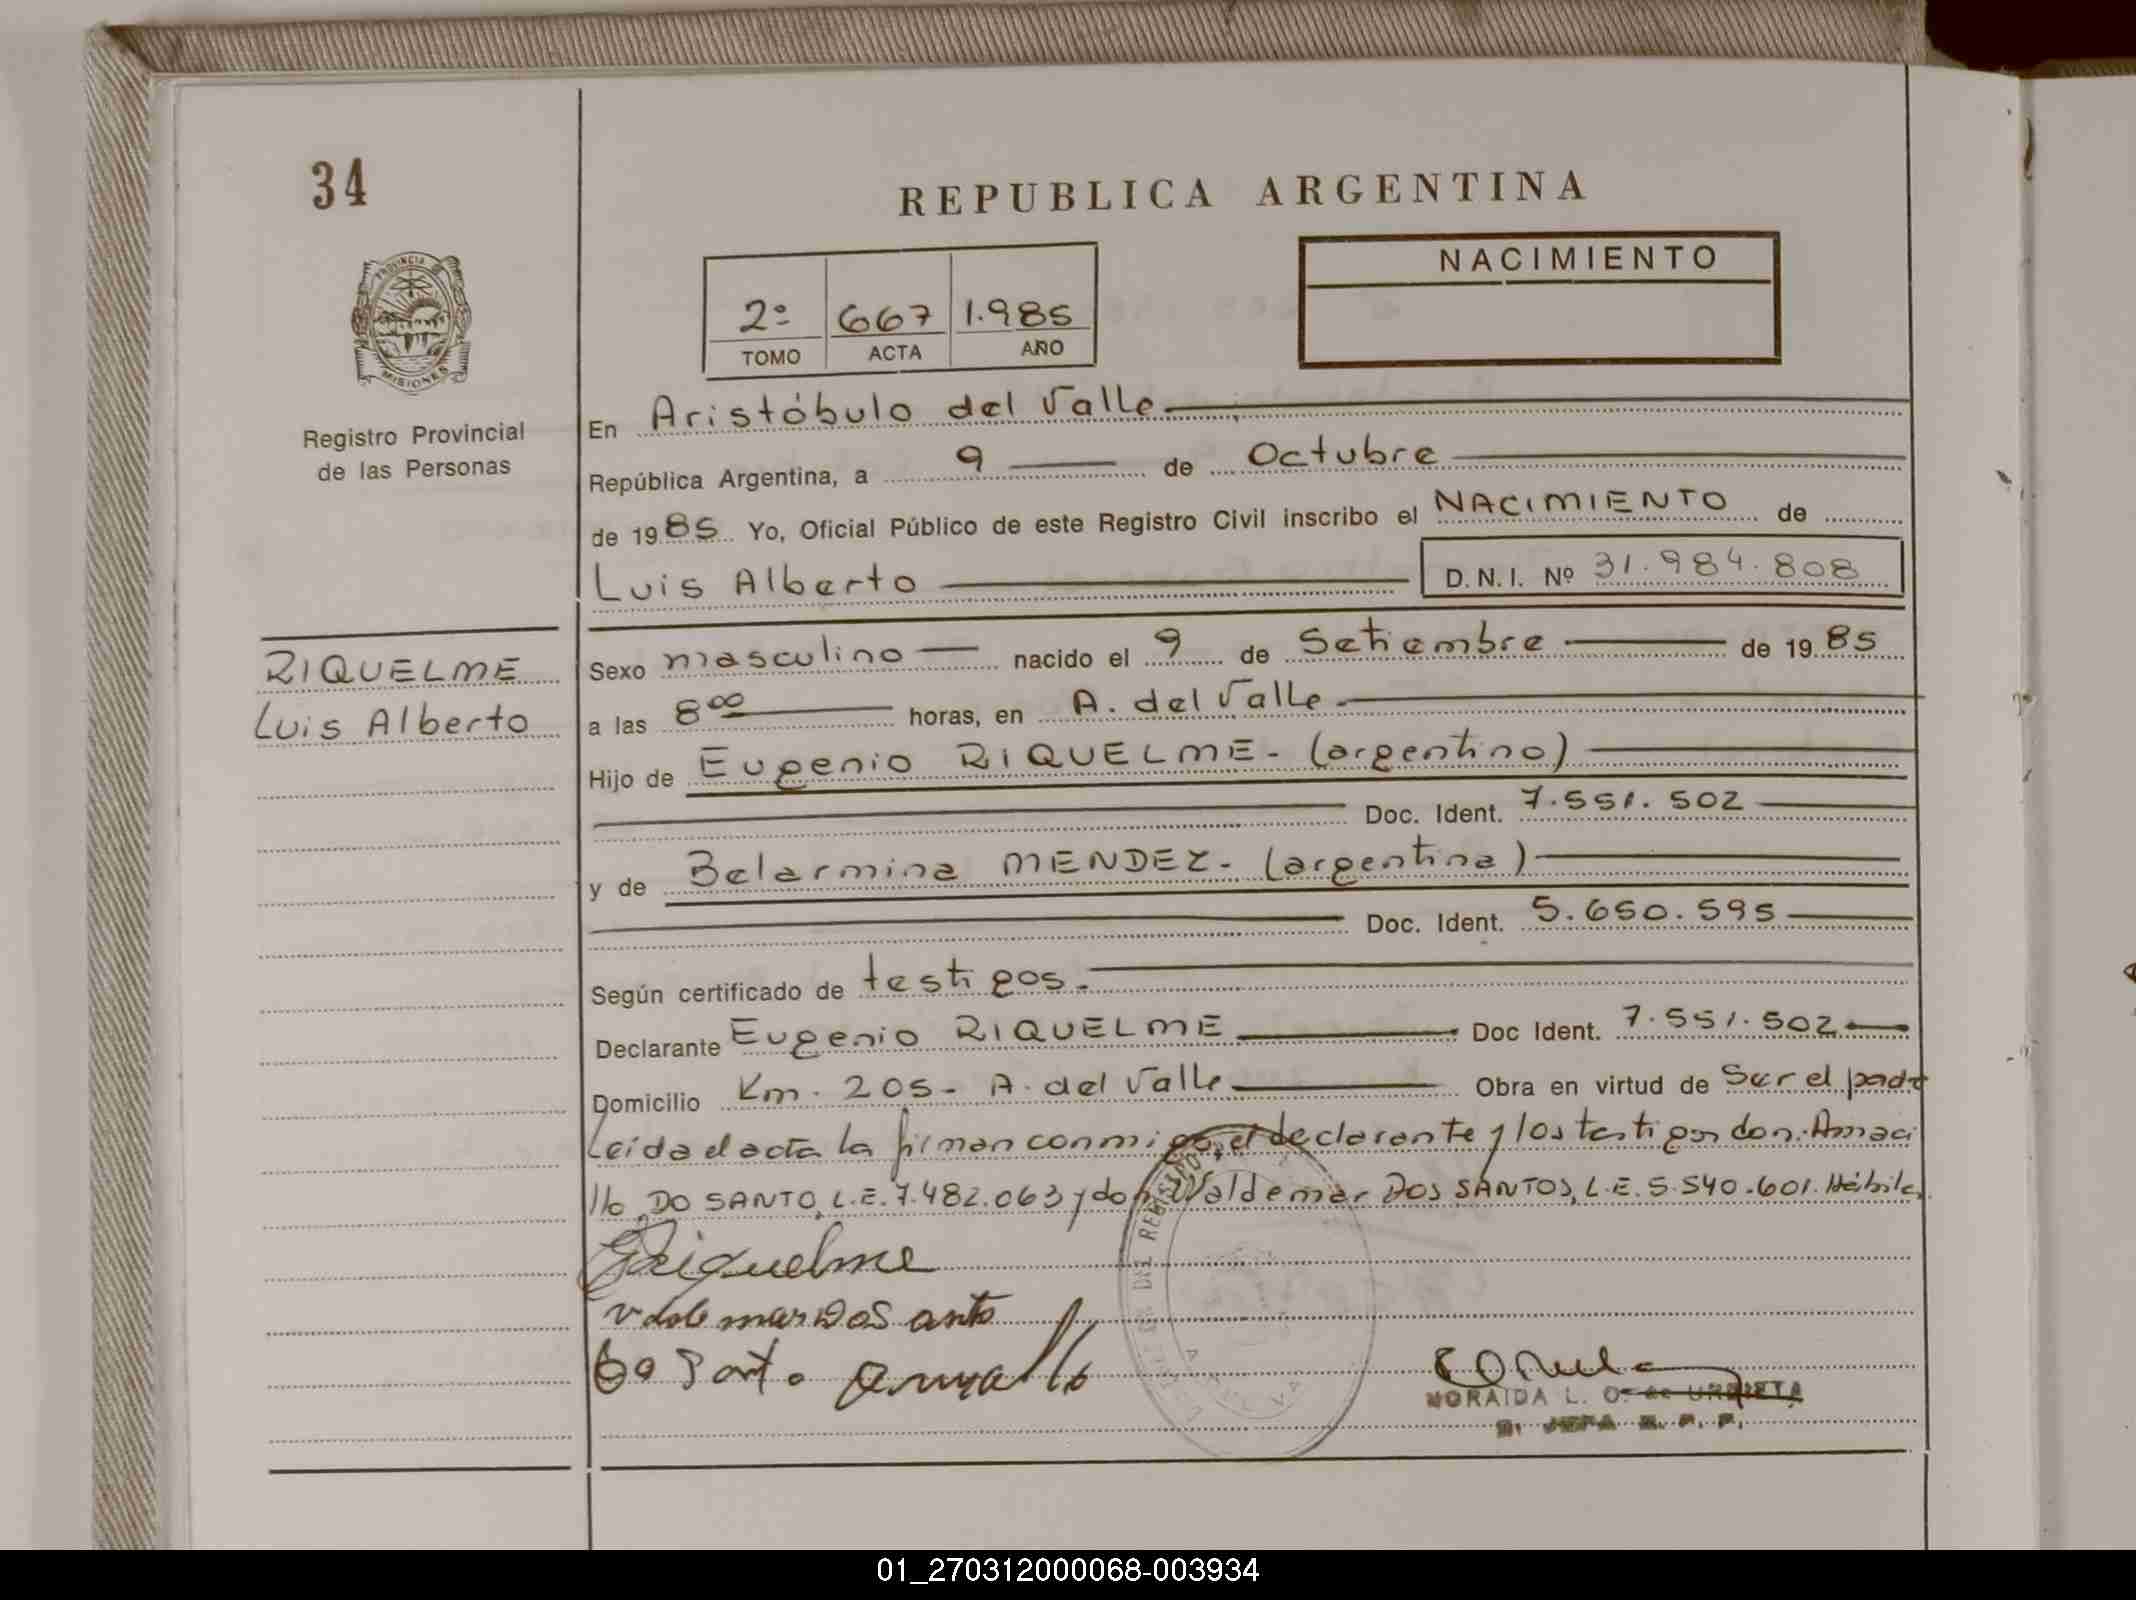 34
REPUBLICA ARGENTINA
NACIMIENTO
2º 667 1.985
TOMO ACTA AÑO
PROVINCIA DE
MISIONES
Registro Provincial
de las Personas
En Aristóbulo del Valle
República Argentina, a 9 de Octubre
de 1985 Yo, Oficial Público de este Registro Civil inscribo el NACIMIENTO de
Luis Alberto D.N.I. Nº 31.984.808
RIQUELME
Luis Alberto
Sexo masculino nacido el 9 de Setiembre de 1985
a las 8⁰⁰ horas, en A. del Valle
Hijo de Eugenio RIQUELME - (argentino)
Doc. Ident. 7.551.502
y de Belarmina MENDEZ - (argentina)
Doc. Ident. 5.650.595
Según certificado de testigos.
Declarante Eugenio RIQUELME Doc Ident. 7.551.502
Domicilio Km. 205 - A. del Valle Obra en virtud de Ser el padre
Leída el acta la firman conmigo, el declarante y los testigos don: Amaci
llo DO SANTO, L.E. 7.482.063 y don Waldemar DOS SANTOS, L.E. 5.540.601. Hábiles
Riquelme
NORAIDA L. O. de URRIETA
01_270312000068-003934